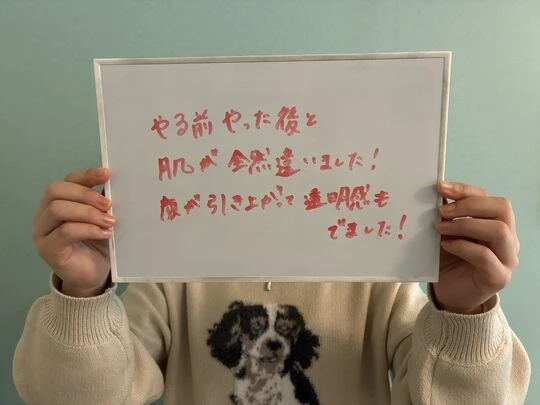 やる前やった後と
肌が全然違いました!
皮が引き上がって透明感も
でました!